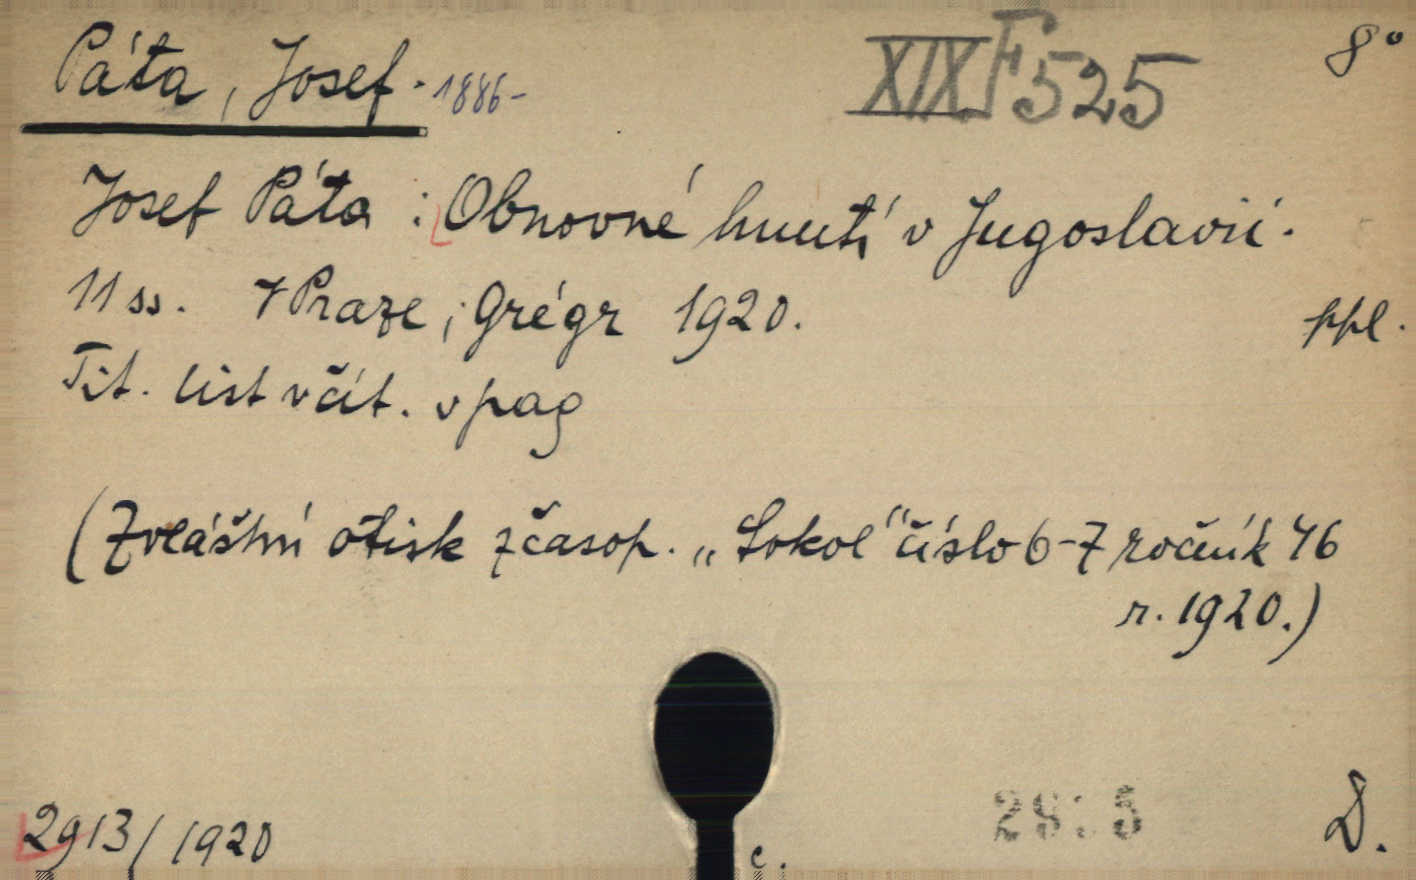 Páta, Josef. 1886-
XIX F 525
8°
Josef Páta : Obnovné hnutí v Jugoslavii.
11 ss. V Praze, Grégr 1920.
ppl.
Tit. list včít. v pag
(Zvláštní otisk z časop. „Sokol" číslo 6-7 ročník 46
r. 1920.)
2913/1920
c.
D.